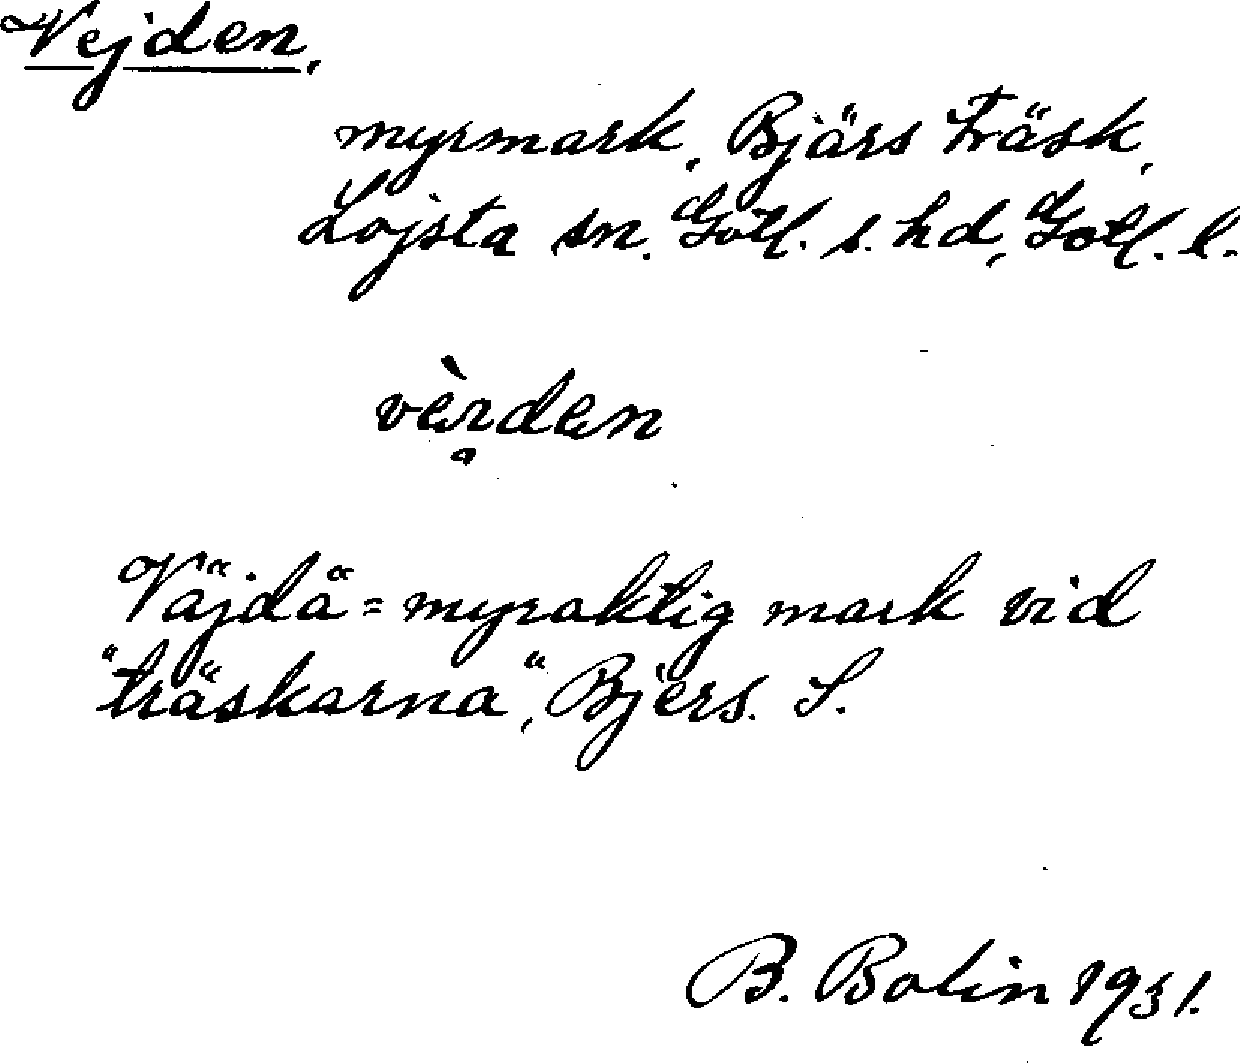 Vejden,
myrmark, Bjärs träsk,
Lojsta sn. Gotl. s. hd, Gotl. l.
Väjdä = myraktig mark vid
"träskarna", Bjers. S.
B. Bolin 1931.